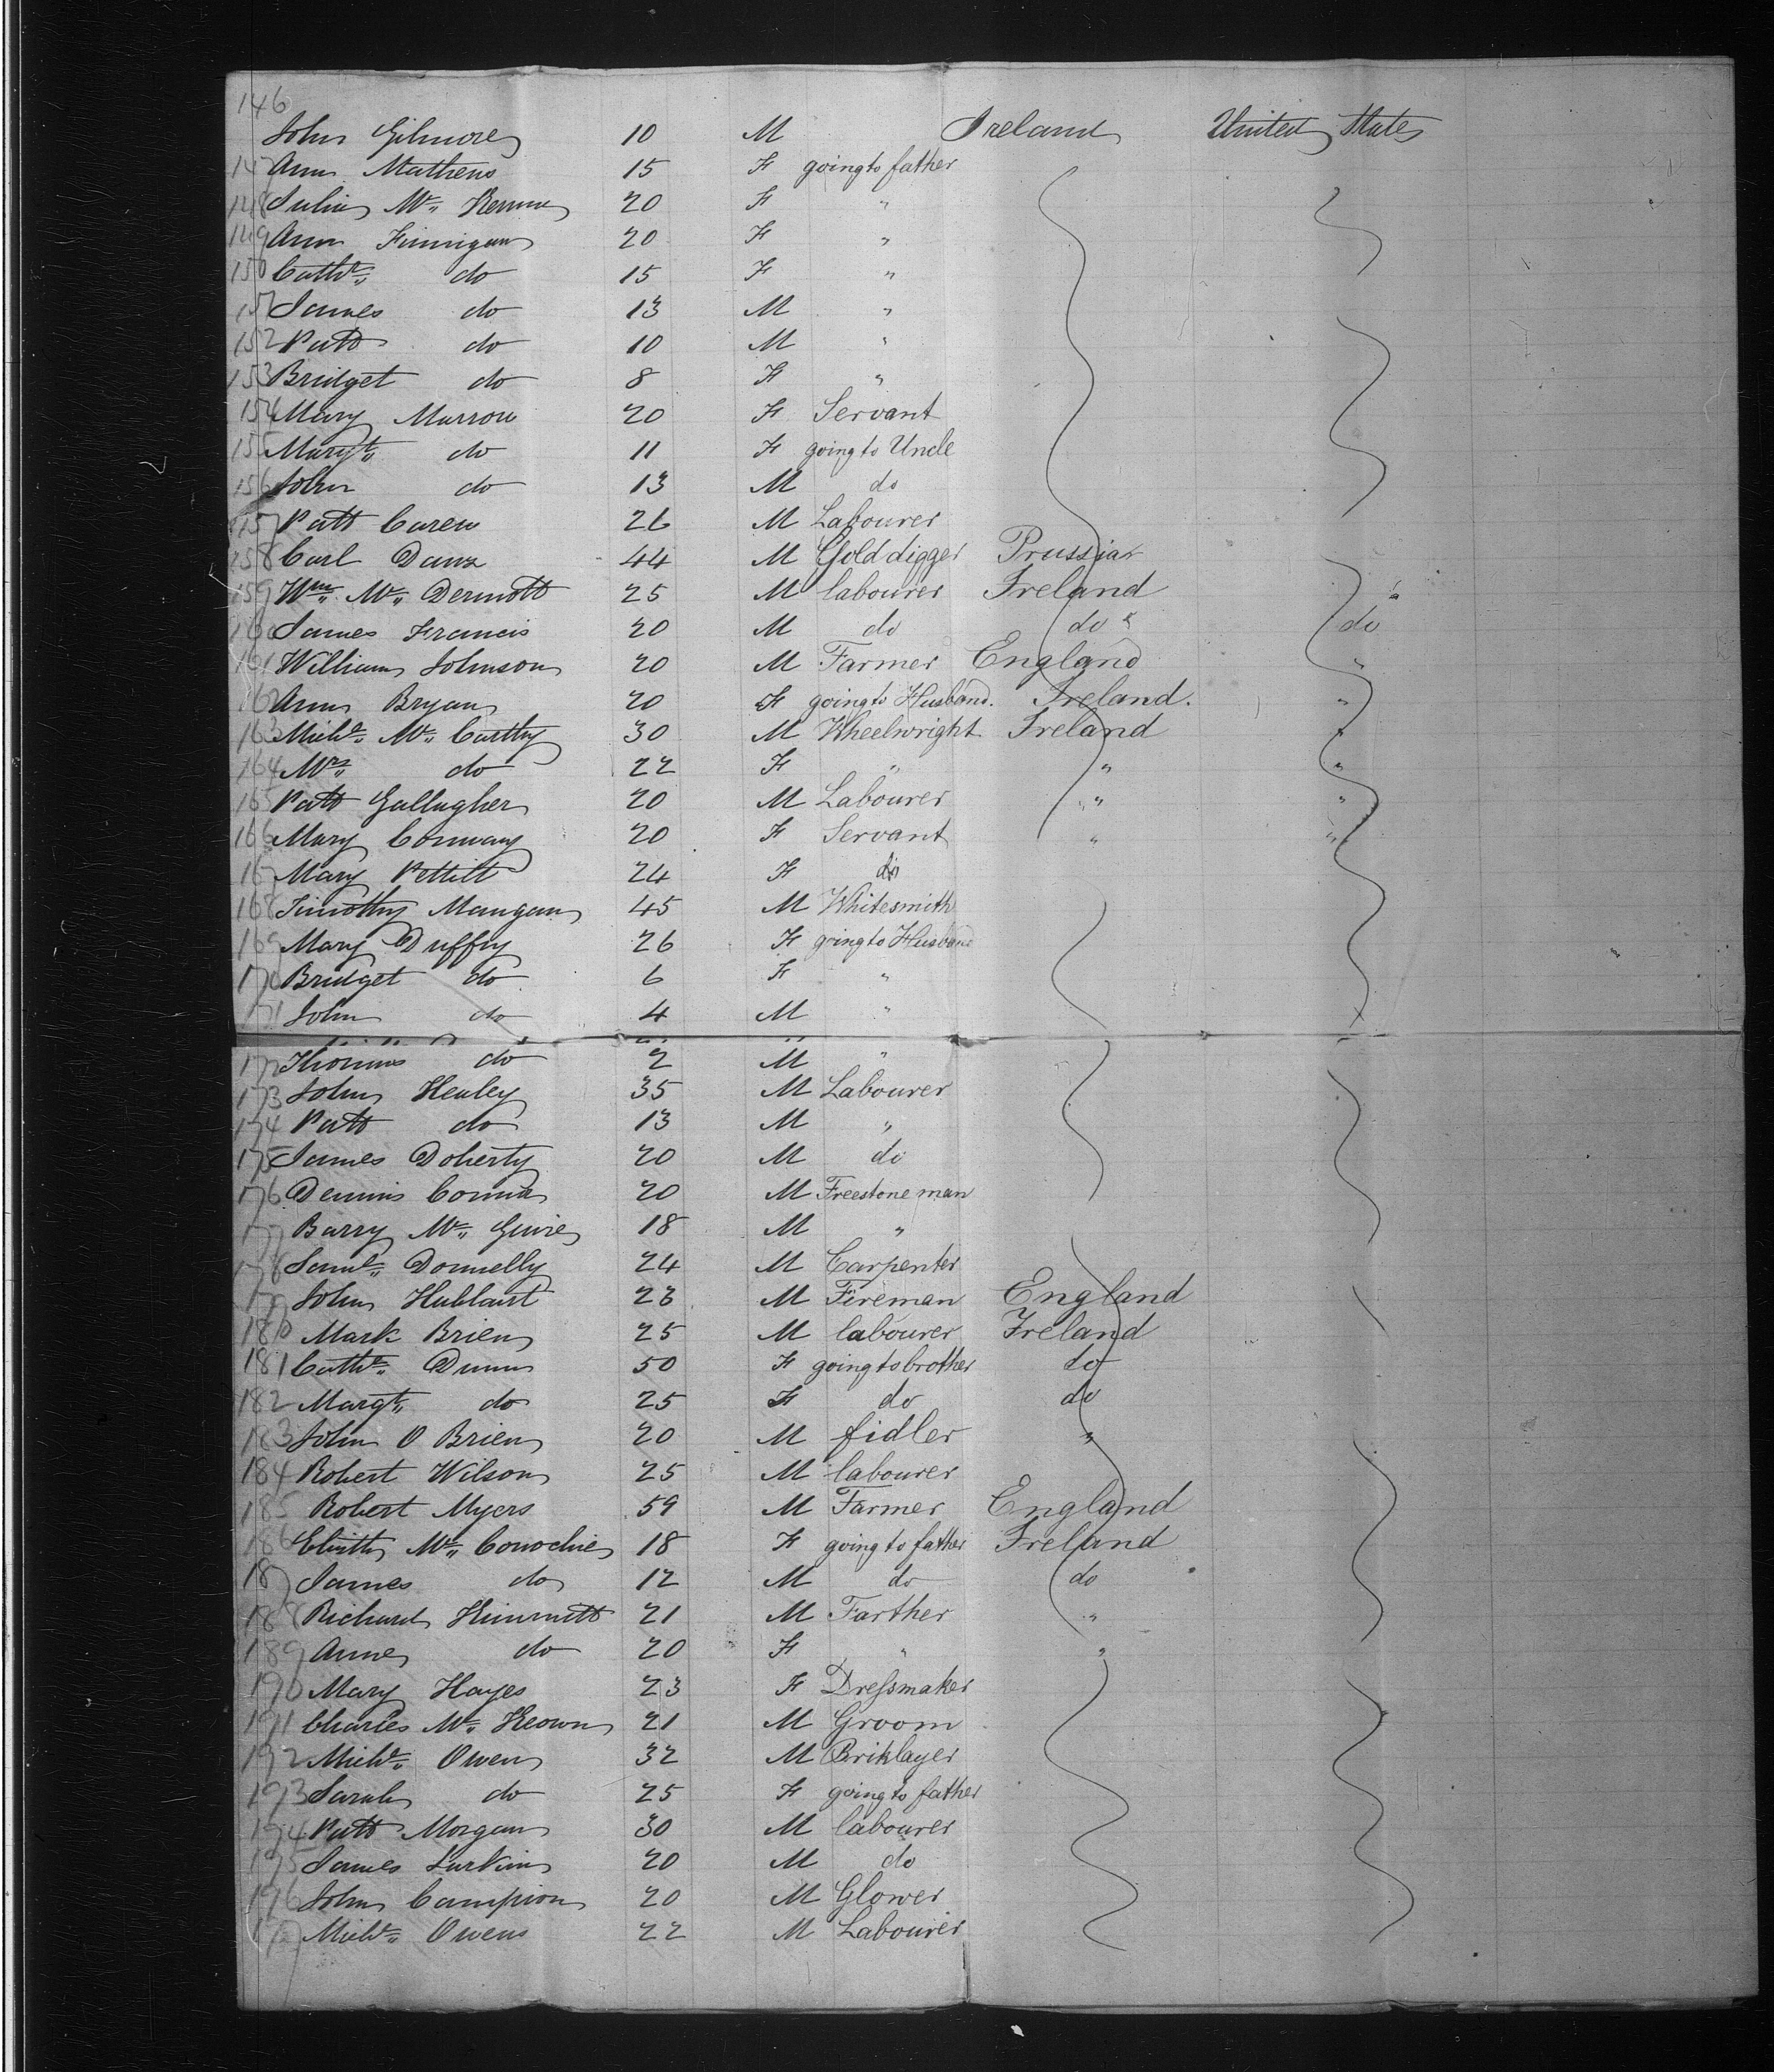 146
John Gilmore 10 M Ireland United States
147 Ann Mathews 15 F going to father
148 Julia Mc Kenna 20 F "
149 Ann Finnigan 20 F "
150 Cathe do 15 F "
151 James do 13 M "
152 Patt do 10 M "
153 Bridget do 8 F "
154 Mary Marron 20 F Servant
155 Margt do 11 F going to Uncle
156 John do 13 M do
157 Patt Carew 26 M Labourer
158 Carl Danz 44 M Gold digger Prussia
159 Wm Mc Dermott 25 M labourer Ireland
160 James Francis 20 M do do do
161 William Johnson 20 M Farmer England "
162 Ann Bryan 20 F going to Husband. Ireland. "
163 Michl Mc Carthy 30 M Wheelwright Ireland "
164 Mrs do 22 F " " "
165 Patt Gallagher 20 M Labourer " "
166 Mary Conway 20 F Servant " "
167 Mary Pettitt 24 F do
168 Timothy Mangan 45 M Whitesmith
169 Mary Duffy 26 F going to Husband
170 Bridget do 6 F "
171 John do 4 M "
172 Thomas do 2 M "
173 John Healey 35 M Labourer
174 Patt do 13 M "
175 James Doherty 20 M do
176 Dennis 20 M Freestone man
177 Barry Mc Guire 18 M "
178 Saml Donnelly 24 M Carpenter
179 John 23 M Fireman England
180 Mark Brien 25 M labourer Ireland
181 Cathe Dunn 50 F going to brother do
182 Margt do 25 F do do
183 John O Brien 20 M fidler "
184 Robert Wilson 25 M labourer
185 Robert Myers 59 M Farmer England
186 Mc Conochie 18 F going to father Ireland
187 James do 12 M do do
188 Richard 21 M Farther "
189 Anne do 20 F " "
190 Mary Hayes 23 F Dressmaker
191 Charles Mc Keown 21 M Groom
192 Michl Owen 32 M Briklayer
193 Sarah do 25 F going to father
194 Patt Morgan 30 M labourer
195 James Larkin 20 M do
196 John Campion 20 M Glower
197 Michl Owens 22 M Labourer